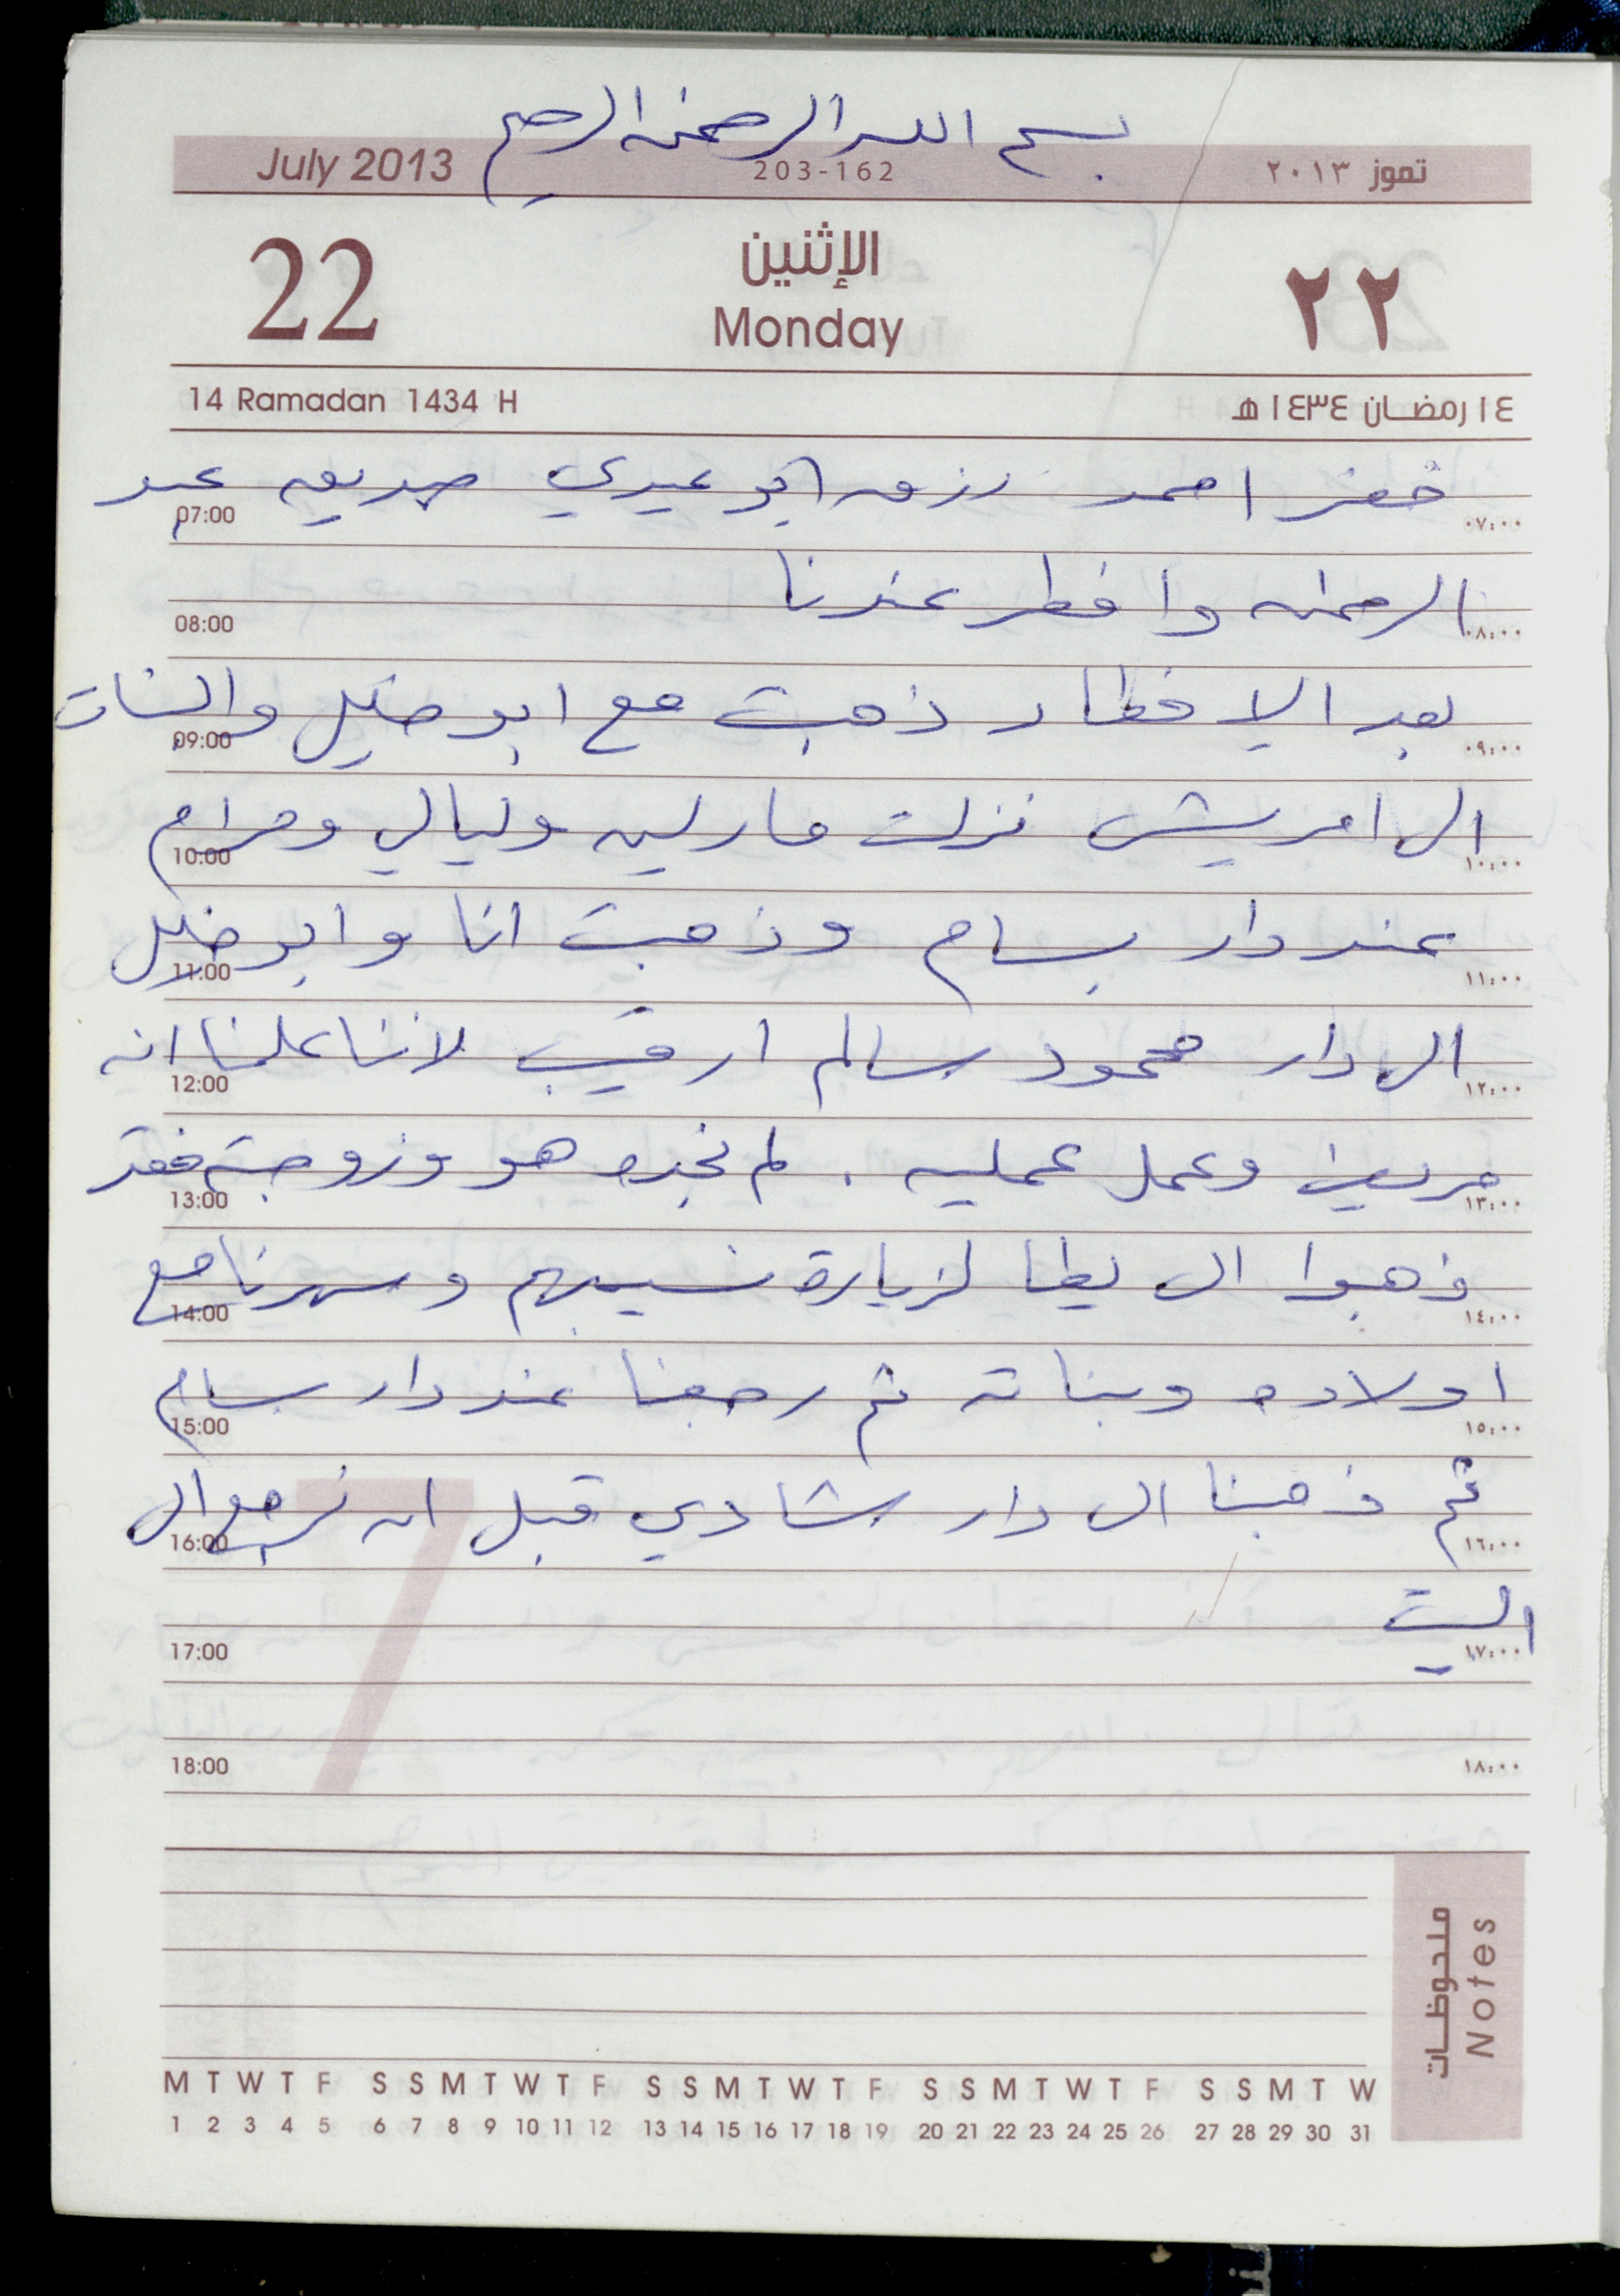 بسم الله الرحمن الرحيم
July 2013 203-162 تموز ٢٠١٣
22 الإثنين ٢٢
Monday
14 Ramadan 1434 H ١٤ رمضان ١٤٣٤ هـ
حضر احمد رزق ابو عيدي صديق عبد
07:00 ٠٧:٠٠
الرحمن وافطر عندنا
08:00 ٠٨:٠٠
بعد الافطار ذهبت مع ابو خليل والبنات
09:00 ٠٩:٠٠
الى امريش نزلت مارلين وليالي ومرام
10:00 ١٠:٠٠
عند دار بسام وذهبت انا وابو خليل
11:00 ١١:٠٠
الى دار محمود سالم ارقيب لاننا علمنا انه
12:00 ١٢:٠٠
مريض وعمل عمليه . لم نجده هو وزوجته فقد
13:00 ١٣:٠٠
ذهبوا الى يطا لزيارة نسيبهم وسهرنا مع
14:00 ١٤:٠٠
اولاده وبناته ثم رجعنا عند دار بسام
15:00 ١٥:٠٠
ثم ذهبنا الى دار شادي قبل ان نرجع الى
16:00 ١٦:٠٠
البيت
17:00 ١٧:٠٠
18:00 ١٨:٠٠
7
ملحوظات
Notes
M T W T F S S M T W T F S S M T W T F S S M T W T F S S M T W
1 2 3 4 5 6 7 8 9 10 11 12 13 14 15 16 17 18 19 20 21 22 23 24 25 26 27 28 29 30 31